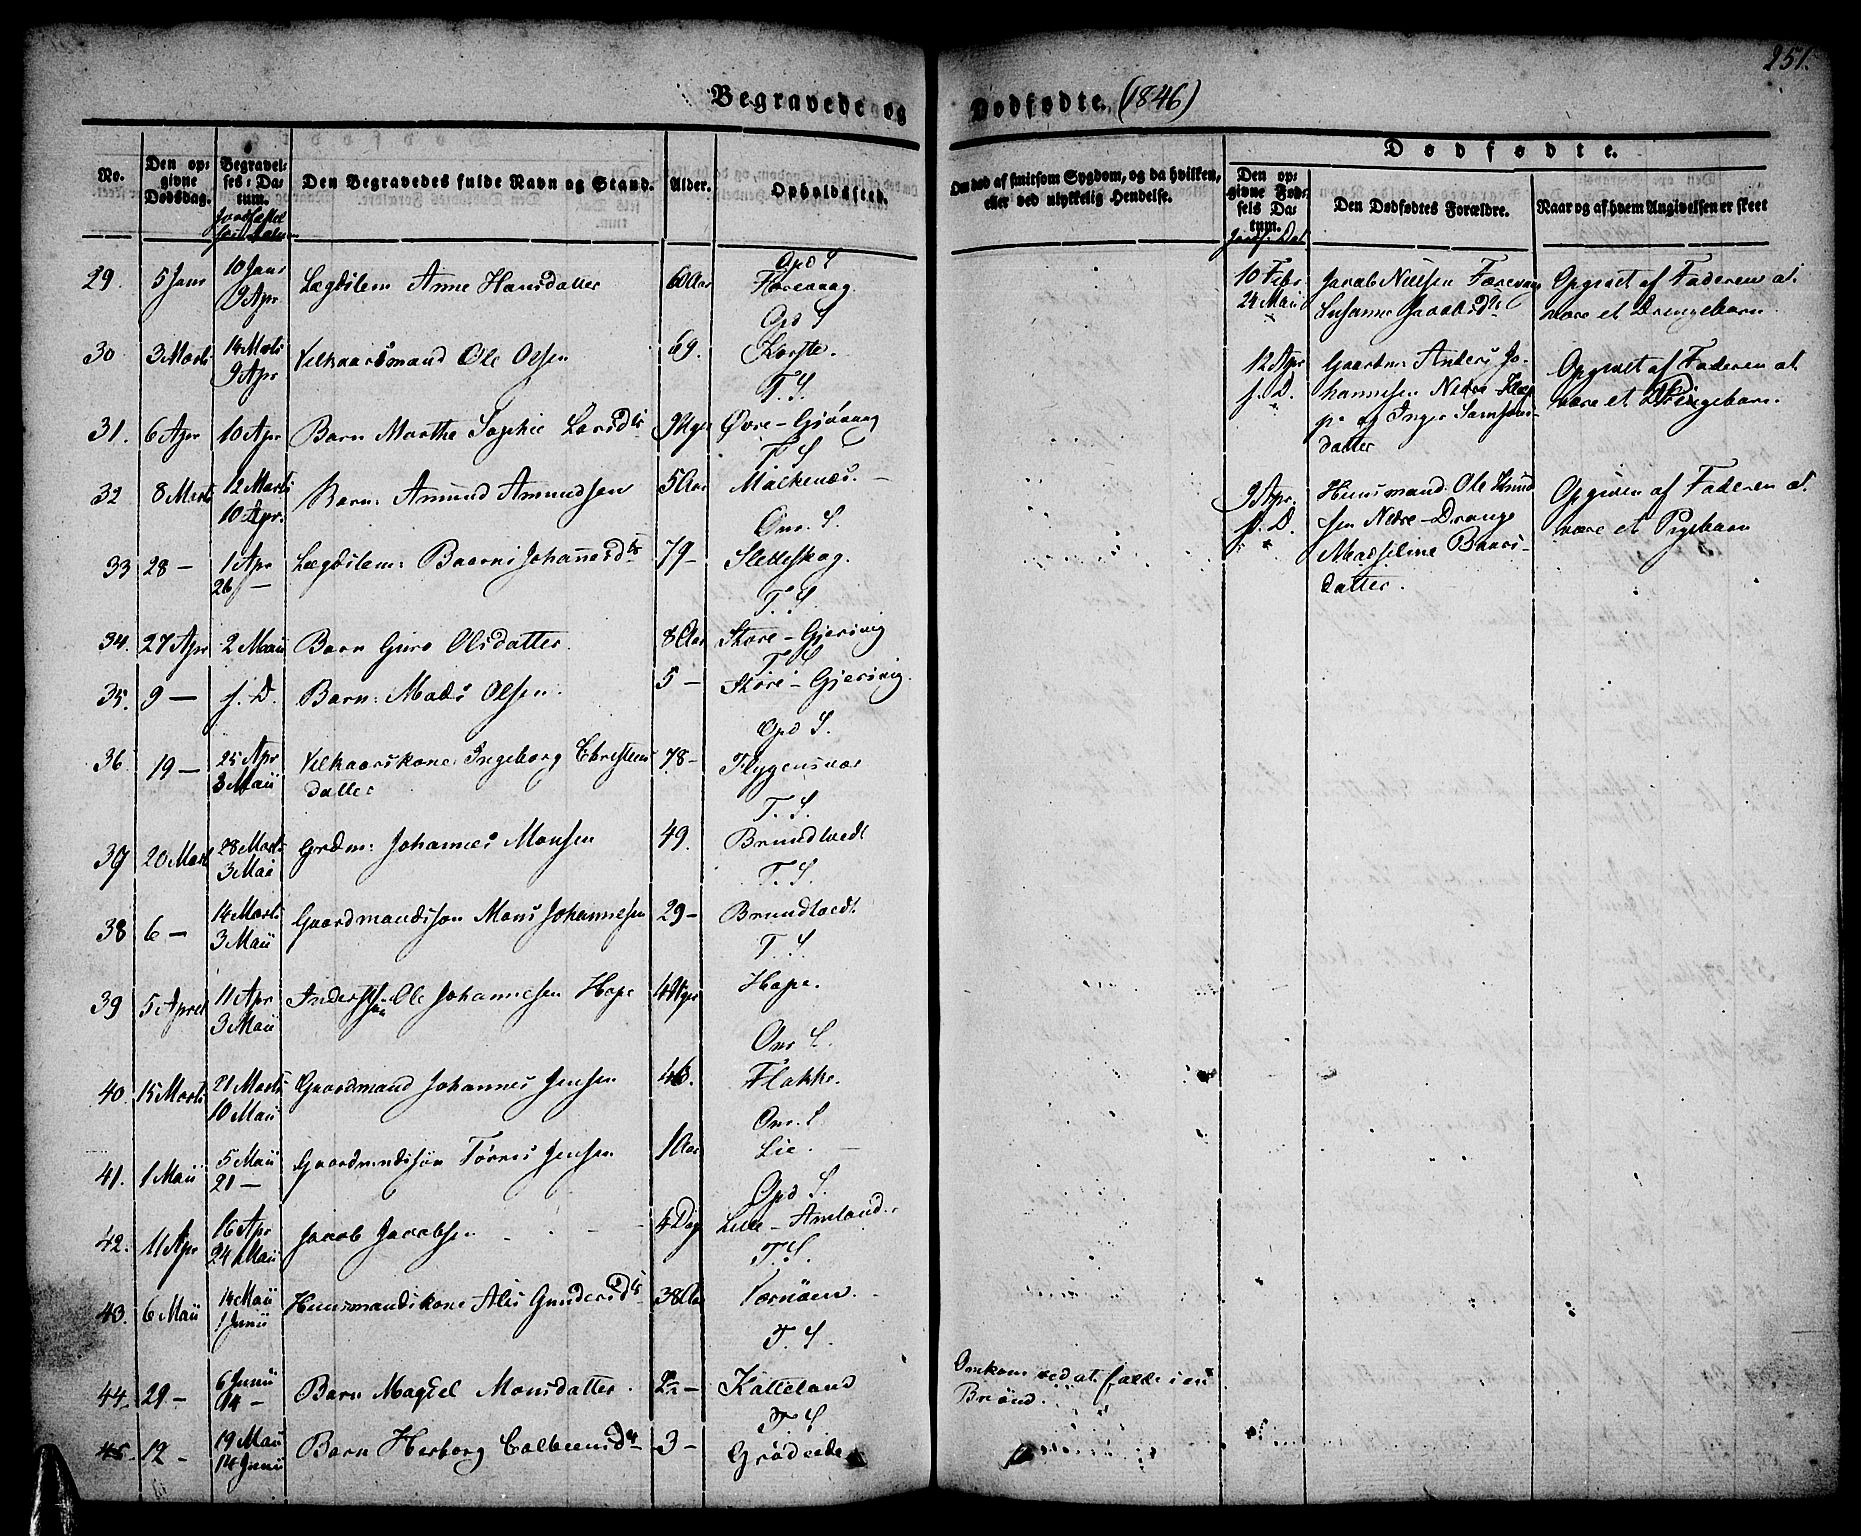 251.
Begravede og Dødfødte. (1846)
No.
Den opgivne Dødsdag.
Begravelses-Datum.
Den Begravedes fulde Navn og Stand.
Alder.
Opholdssted.
Om død af smitsom Sygdom, og da hvilken, eller ved ulykkelig Hendelse.
Dødfødte.
Den opgivne Fødsels Datum.
Den Dødfødtes Forældre.
Naar og af hvem Angivelsen er skeet
29. 5 Janr 10 Janr Lægdslem Anne Hansdatter 60 Aar Opd S
9 Apr
30 3 Marts 14 Marts Vilkaarsmand Ole Olsen 69. Opd S
9 Apr
31. 6 Apr 10 Apr Barn Marthe Sophie Larsdtr 9 Uger T. S. Øvre-Gjøvaag
32 8 Marts 12 Marts Barn: Amund Amundsen 5 Aar T. S Mækenæs.
10 Apr:
33 28 — 1 Apr Lægdslem: Johannesdtr 79 — Onr. S. Sletteskog.
26 —
34. 27 Apr 2 Maii Barn Guro Olsdatter. 8 Aar T. S. Støre-Gjerivig
35. 9 — s. D. Barn: Mads Olsen. 5 — T. S Støre-Gjerivig.
36. 19 — 25 Apr Vilkaarskone: Ingeborg Christens 78 — Opd S.
3 Maii datter
37 20 Marts 28 Marts Grdm: Johannes Monsen 49. T. S. Brundtvedt
3 Mai
38 6 — 14 Marts Gaardmandssøn Mons Johannesen 29 — T. S. Brundtvedt
3 Maii
39 5 April 11 Apr Ole Johannesen Hope 4 Uger T. S. Hope.
3 Maii
40. 15 Marts 21 Marts Gaardmand Johannes Jensen 46. Onr S. Flakke.
10 Maii
41. 1 Maii 5 Maii Gaardmandssøn Tørres Jensen 1 Aar Onr. S Lie.
21 —
42. 11 Apr 16 Apr Jacob Jacobsen 4 Dage Opd S. Lille-Amland.
24 Maii
43. 6 Maii 14 Maii Huusmandskone Alis Gundersdtr 38 Aar T. S.
1 Junii
44. 29 — 6 Junii Barn Magsel Monsdatter. 2 — T. S. Katteland
14 — Omkom ved at falde i en
Brønd.
45. 12 — 19 Maii Barn Herborg 3 — T. S
14 Junii
10 Febr. Jacob Nielsen Færevaag Opgivet af Faderen at
24 Maii Susanne Jacobsdtr være et Drengebarn
12 Apr Gaardm: Anders Jo- Opgivet af Faderen at
s. D. hannesen Nedre-Kiep- være et Pigebarn.
pe og Inger Samsons-
datter
9 Apr. Huusmand: Ole Knud Opgiven af Faderen at
s. D. sen Nedre-Drange være et Pigebarn
Madseline Baars-
datter.